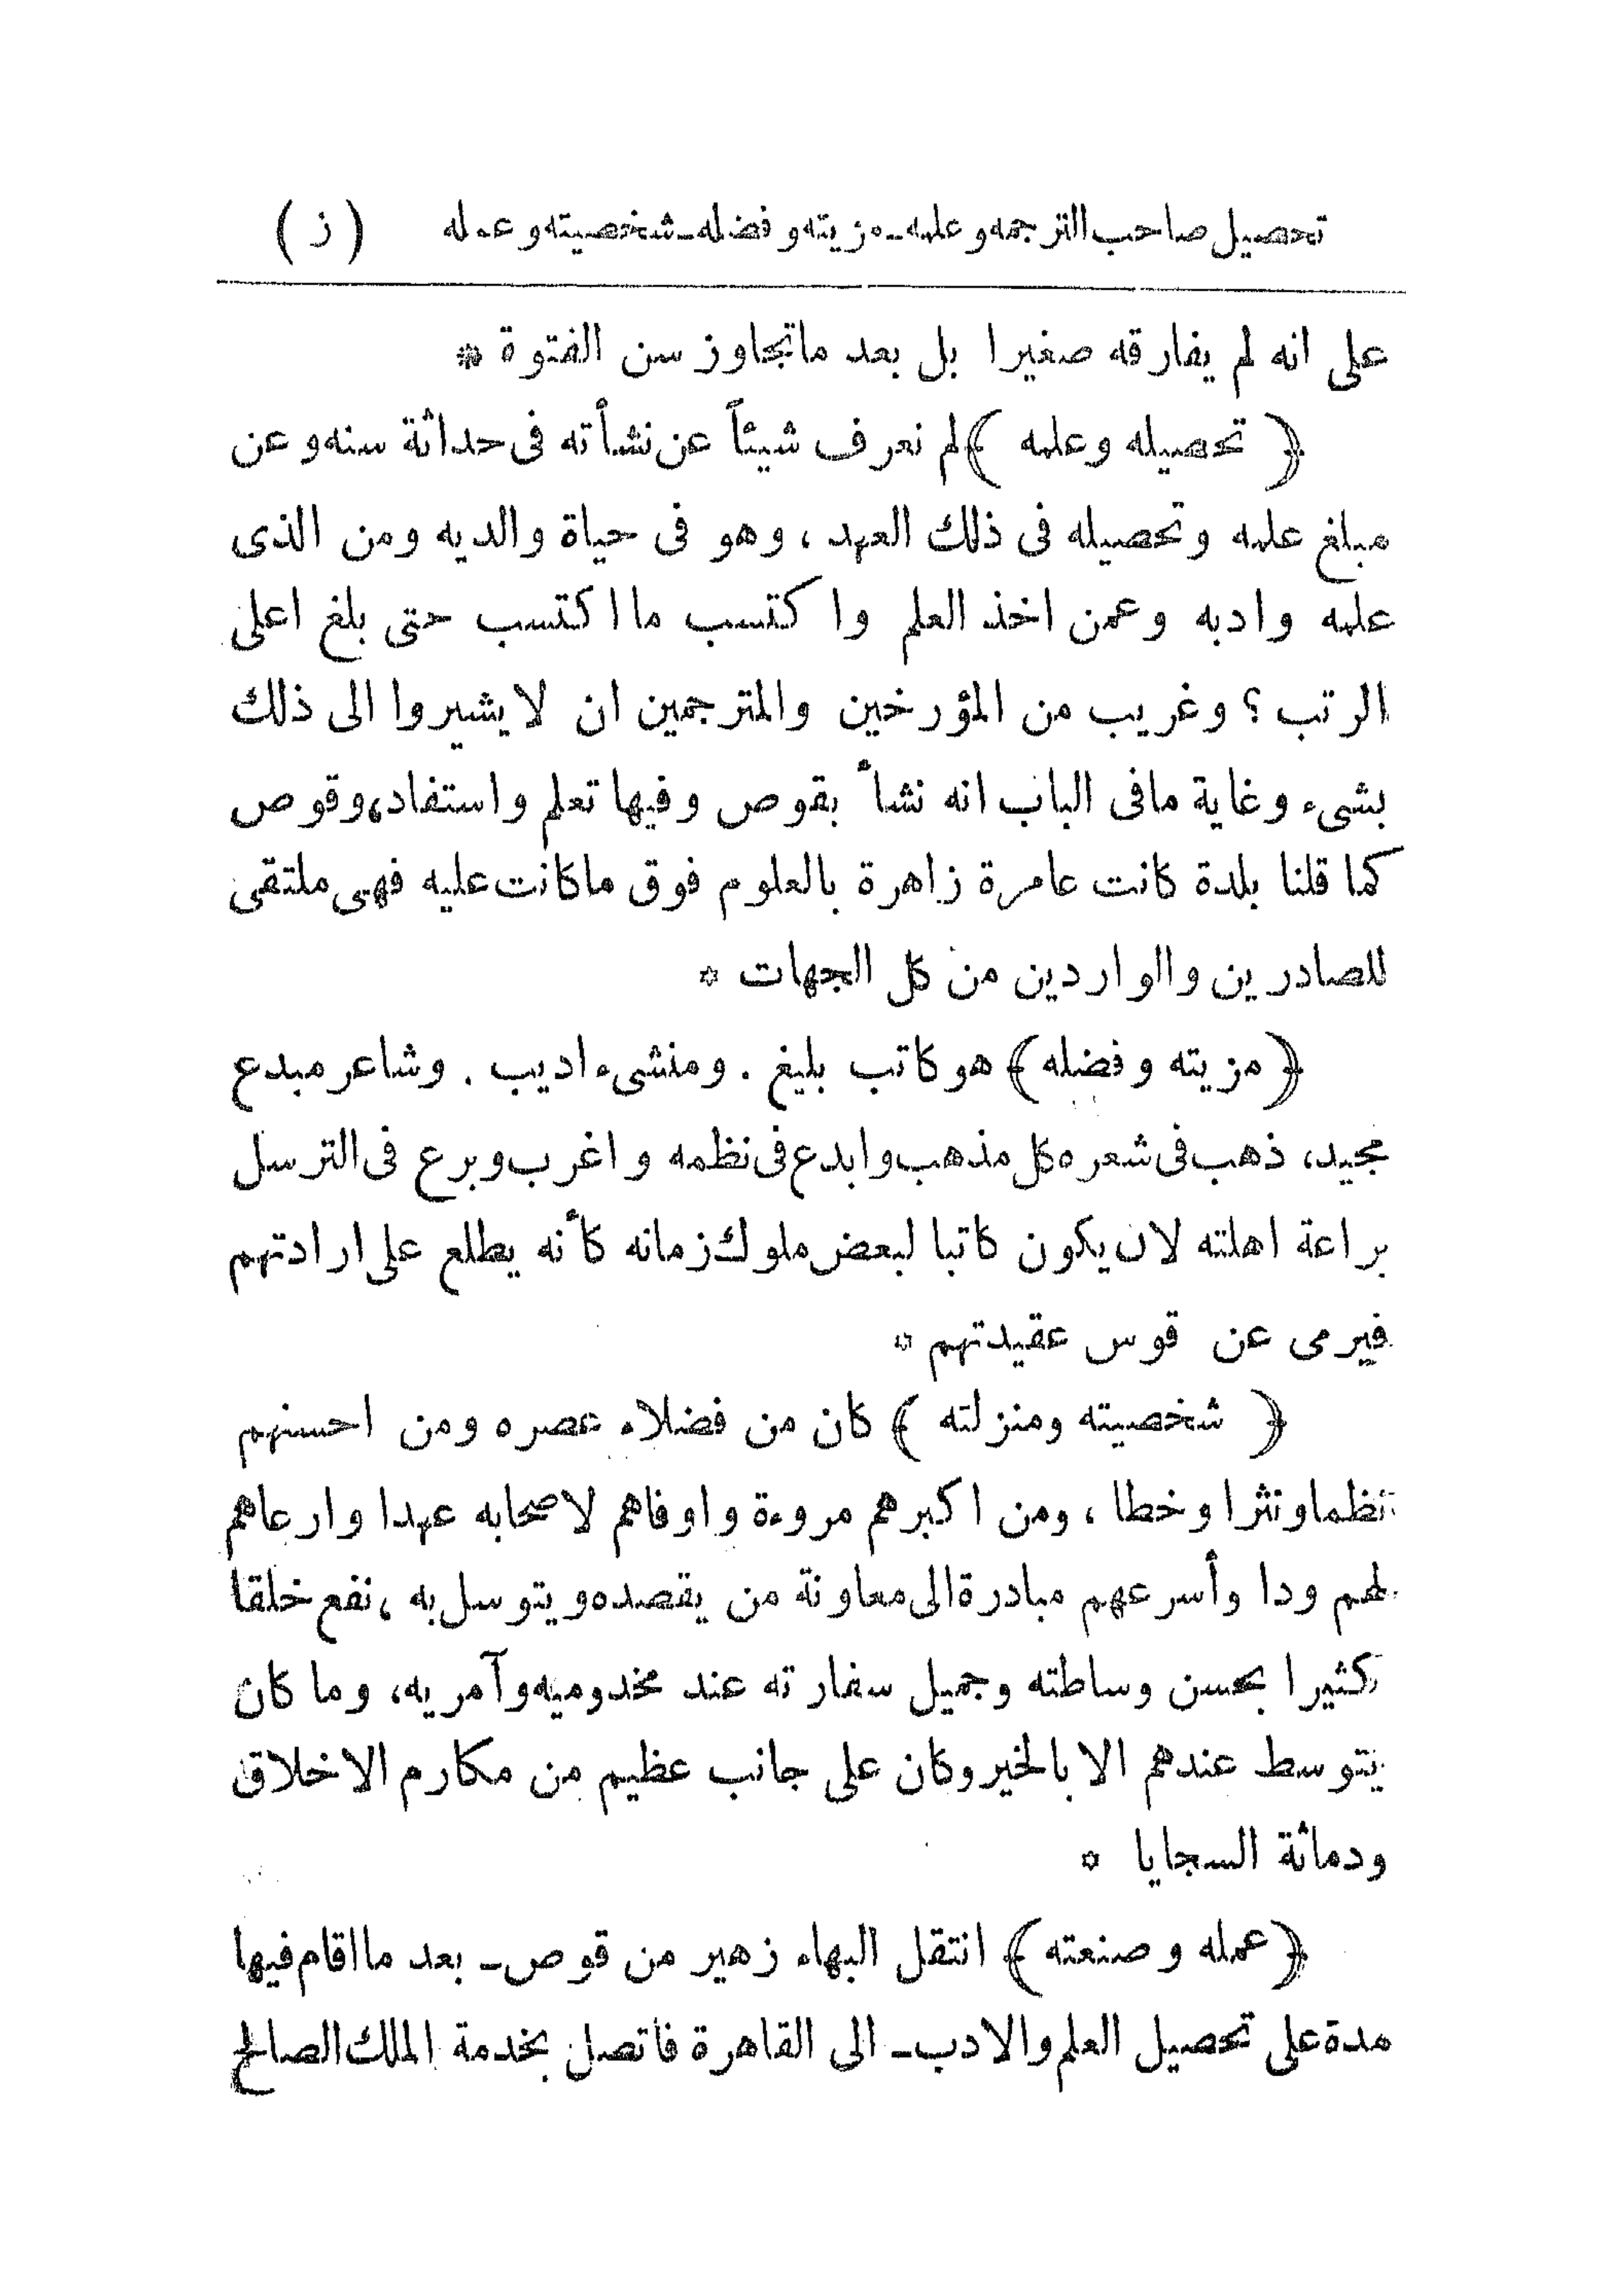 تحصيل صاحب الترجمه وعلمه ـ مزيته وفضله ـ شخصيته وعمله (ز)
على انه لم يفارقه صغيرا بل بعد ماتجاوز سن الفتوة *
﴿ تحصيله وعلمه ﴾ لم نعرف شيئاً عن نشأته فى حداثة سنه وعن
مبلغ علمه وتحصيله فى ذلك العهد ، وهو فى حياة والديه ومن الذى
علمه وادبه وعمن اخذ العلم واكتسب مااكتسب حتى بلغ اعلى
الرتب ؟ وغريب من المؤرخين والمترجمين ان لايشيروا الى ذلك
بشىء وغاية مافى الباب انه نشأ بقوص وفيها تعلم واستفاد، وقوص
كما قلنا بلدة كانت عامرة زاهرة بالعلوم فوق ماكانت عليه فهى ملتقى
للصادرين والواردين من كل الجهات *
﴿ مزيته وفضله ﴾ هو كاتب بليغ . ومنشىء اديب . وشاعر مبدع
مجيد، ذهب فى شعره كل مذهب وابدع فى نظمه واغرب وبرع فى الترسل
براعة اهلته لان يكون كاتبا لبعض ملوك زمانه كأنه يطلع على ارادتهم
فيرمى عن قوس عقيدتهم *
﴿ شخصيته ومنزلته ﴾ كان من فضلاء عصره ومن احسنهم
نظما ونثرا وخطا ، ومن اكبرهم مروءة واوفاهم لاصحابه عهدا وارعاهم
لهم ودا وأسرعهم مبادرة الى معاونة من يقصده ويتوسل به ، نفع خلقا
كثيرا بحسن وساطته وجميل سفارته عند مخدوميه وآمريه، وما كان
يتوسط عندهم الا بالخير وكان على جانب عظيم من مكارم الاخلاق
ودماثة السجايا *
﴿ عمله وصنعته ﴾ انتقل البهاء زهير من قوص ـ بعد مااقام فيها
مدة على تحصيل العلم والادب ـ الى القاهرة فاتصل بخدمة الملك الصالح